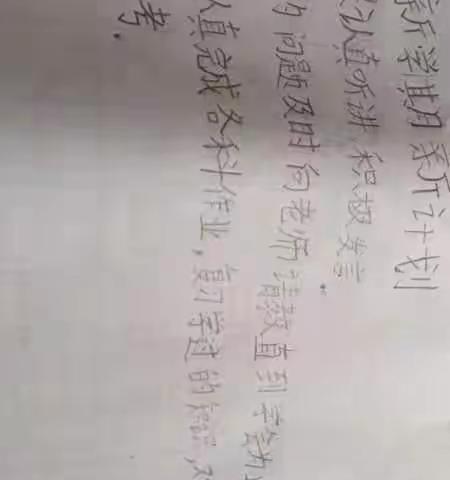 新学期新计划
认真听讲 积极发言
问题及时向老师请教直到学会为
认真完成各科作业，复习学过的知识，
考.